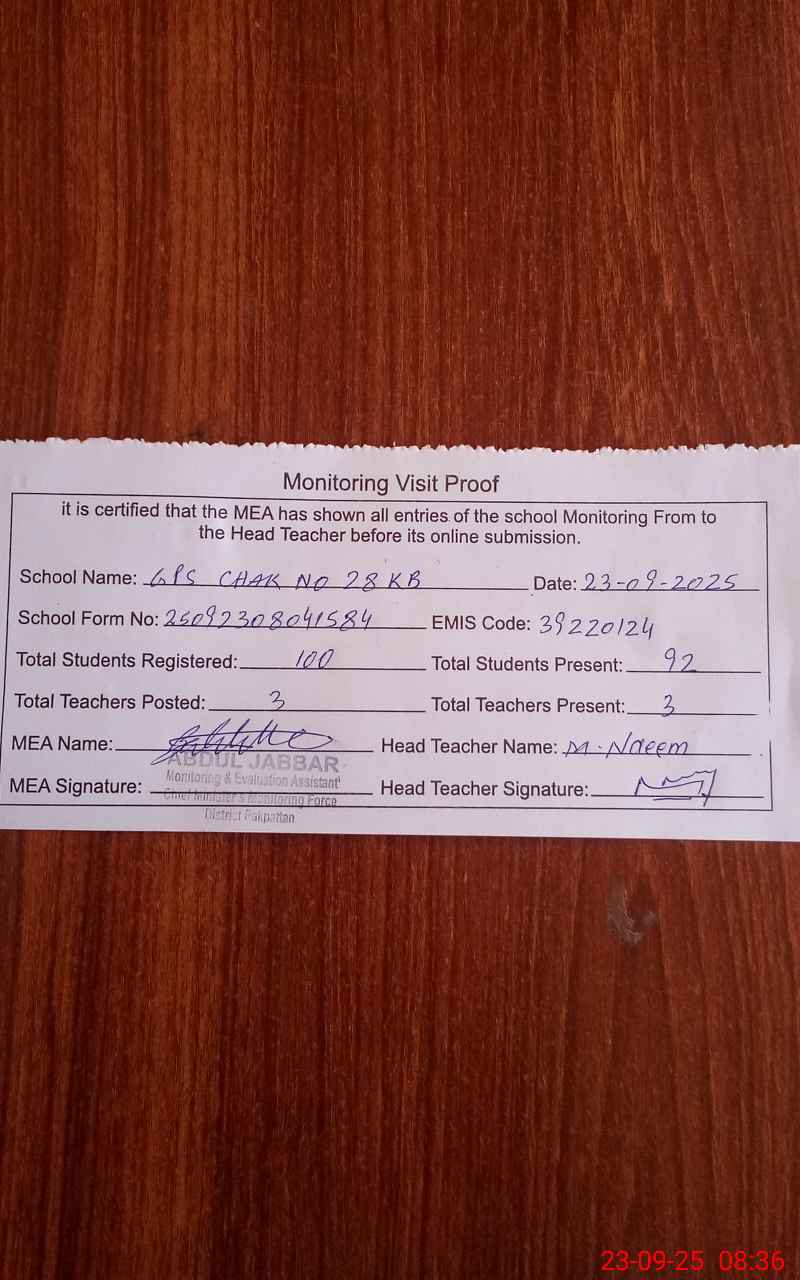 Monitoring Visit Proof
it is certified that the MEA has shown all entries of the school Monitoring From to
the Head Teacher before its online submission.
School Name: GPS CHAK NO 28 KB Date: 23-09-2025
School Form No: 25092308041584 EMIS Code: 39220124
Total Students Registered: 100 Total Students Present: 92
Total Teachers Posted: 3 Total Teachers Present: 3
MEA Name: Head Teacher Name: M. Naeem
ABDUL JABBAR
Monitoring & Evaluation Assistant
MEA Signature: Head Teacher Signature:
Chief Minister's Monitoring Force
District Pakpattan
23-09-25 08:36